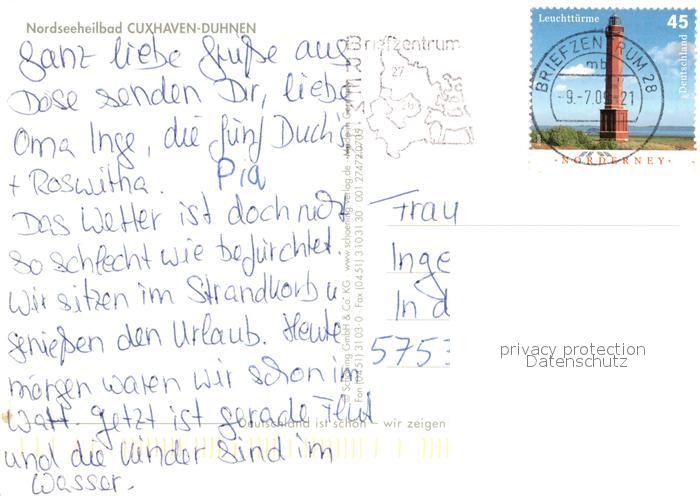 Nordseeheilbad CUXHAVEN-DUHNEN
Ganz liebe Grüße aus
Döse senden Dir, liebe
Oma Inge, die fünf Duch's
+ Roswitha. Pia
Das Wetter ist doch nicht
so schlecht wie befürchtet.
Wir sitzen im Strandkorb u
genießen den Urlaub. Heute
morgen waren wir schon im
Watt. Jetzt ist gerade Flut
und die Kinder sind im
Wasser.
Deutschland ist schön – wir zeigen
© Schöning GmbH & Co. KG www.schoening-verlag.de
Fon (04 51) 3 10 3-0 Fax (04 51) 3 10 31 30
Briefzentrum
27
Leuchttürme
45
Deutschland
NORDERNEY
BRIEFZENTRUM 28
mb
-9.-7.09-21
Frau
Inge
In d
5753
privacy protection
Datenschutz